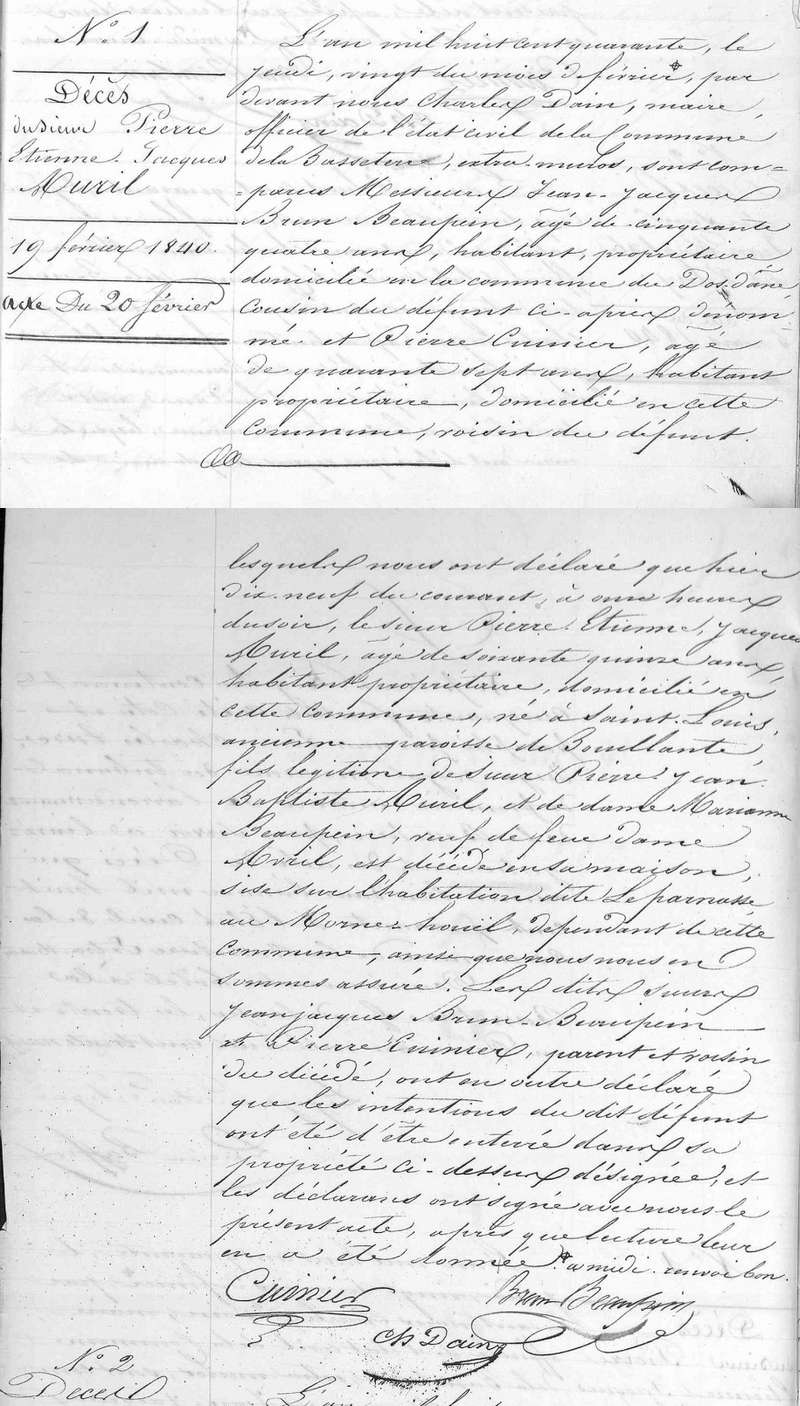 N.° 1
Décès
du Sieur Pierre
Etienne Jacques
Muril
19 février 1840.
acte Du 20 février
L'an mil huit cent quarante, le
jeudi, vingt du mois de février, par
devant nous Charles Dain, maire,
officier de l'état civil de la Commune
de la Basseterre, extra-muros, sont com=
=parus Messieurs Jean-Jacques
Brun Beaupein, âgé de cinquante
quatre ans, habitant, propriétaire
domicilié en la commune du Dos-d'âne
cousin du défunt ci-après dénom-
mé. et Pierre Cuinier, âgé
de quarante sept ans, habitant
propriétaire, domicilié en cette
Commune, voisin du défunt.
lesquels nous ont déclaré que hier
dix-neuf du courant, à onze heures
du soir, le sieur Pierre Etienne, Jacques
Muril, âgé de soixante quinze ans
habitant propriétaire, domicilié en
cette commune, né à Saint-Louis,
ancienne paroisse de Bouillante,
fils légitime de sieur Pierre Jean
Baptiste Muril, et de dame Marianne
Beaupein, veuf de feue dame
Avril, est décédé en sa maison,
sise sur l'habitation dite Le parnasse
au Morne-houël, dépendant de cette
commune, ainsi que nous nous en
sommes assuré. Les dits sieurs
Jean jacques Brun-Beaupein
et Pierre Cuinier, parent et voisin
du décédé, ont en outre déclaré
que les intentions du dit défunt
ont été d'être enterré dans sa
propriété ci-dessus désignée, et
les déclarans ont signé avec nous le
présent acte, après que lecture leur
en a été donnée. à midi. renvoi bon.
Cuinier
Brun Beaupein
Ch Dain
N.° 2
Décès
L'an mil huit